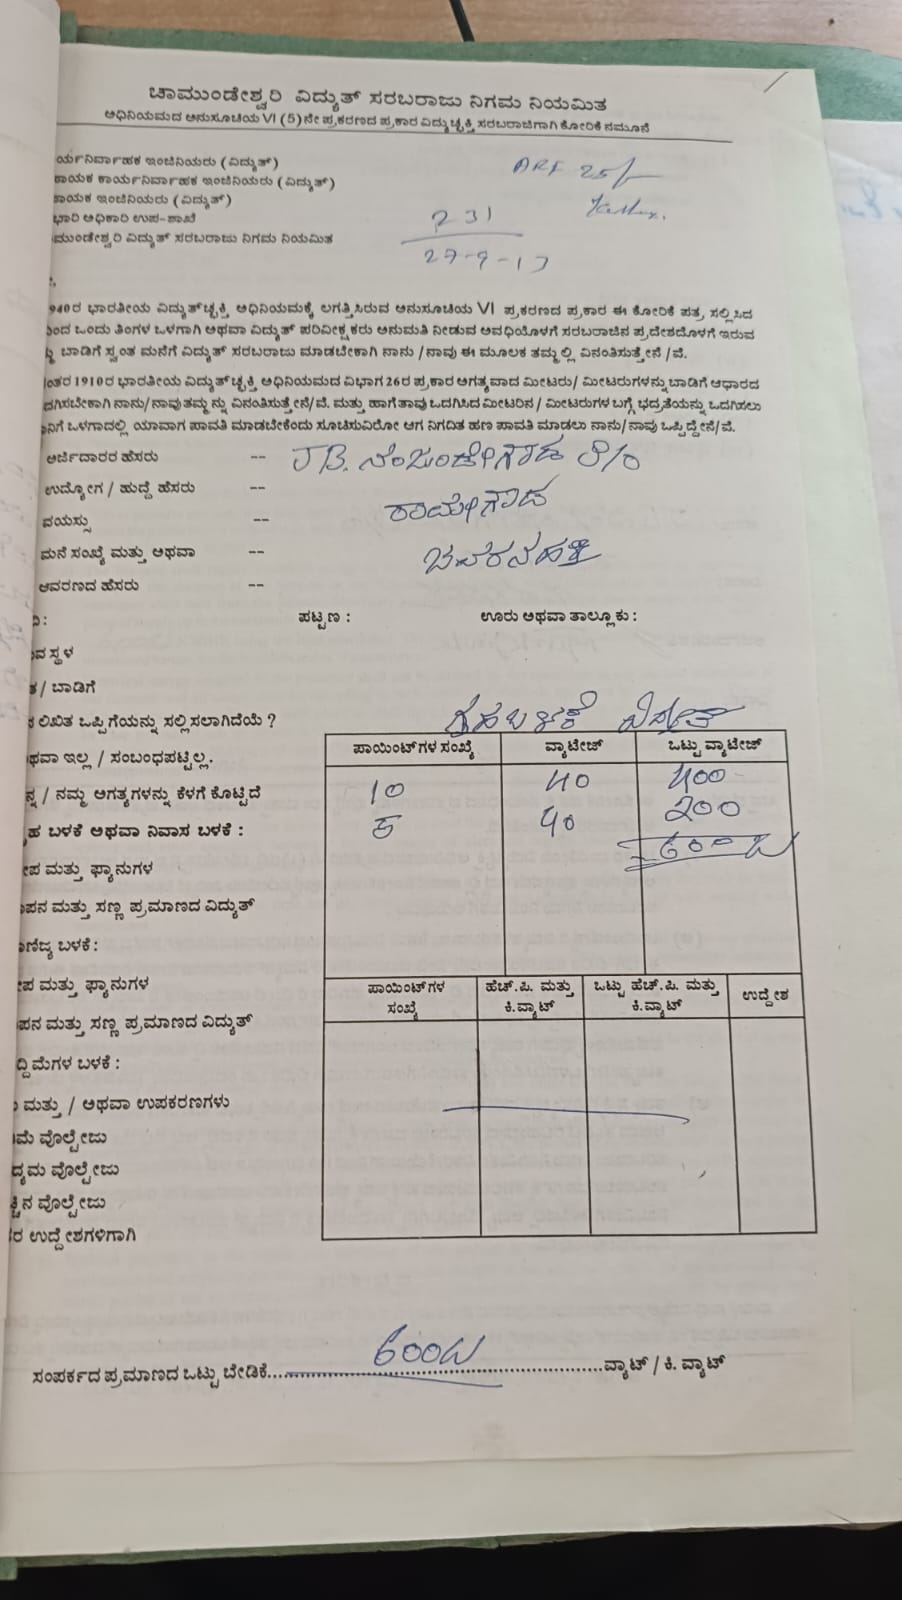 ಚಾಮುಂಡೇಶ್ವರಿ ವಿದ್ಯುತ್ ಸರಬರಾಜು ನಿಗಮ ನಿಯಮಿತ
ಅಧಿನಿಯಮದ ಅನುಸೂಚಿಯ VI (5)ನೇ ಪ್ರಕರಣದ ಪ್ರಕಾರ ವಿದ್ಯುಚ್ಛಕ್ತಿ ಸರಬರಾಜಿಗಾಗಿ ಕೋರಿಕೆ ನಮೂನೆ
ರ್ಯನಿರ್ವಾಹಕ ಇಂಜಿನಿಯರು (ವಿದ್ಯುತ್)
ARF 25/-
ಹಾಯಕ ಕಾರ್ಯನಿರ್ವಾಹಕ ಇಂಜಿನಿಯರು (ವಿದ್ಯುತ್)
ಹಾಯಕ ಇಂಜಿನಿಯರು (ವಿದ್ಯುತ್)
ಭಾರಿ ಅಧಿಕಾರಿ ಉಪ-ಶಾಖೆ
231
ಮುಂಡೇಶ್ವರಿ ವಿದ್ಯುತ್ ಸರಬರಾಜು ನಿಗಮ ನಿಯಮಿತ
27-9-17
940ರ ಭಾರತೀಯ ವಿದ್ಯುತ್‌ಚ್ಛಕ್ತಿ ಅಧಿನಿಯಮಕ್ಕೆ ಲಗತ್ತಿಸಿರುವ ಅನುಸೂಚಿಯ VI ಪ್ರಕರಣದ ಪ್ರಕಾರ ಈ ಕೋರಿಕೆ ಪತ್ರ ಸಲ್ಲಿಸಿದ
ಒಂದು ತಿಂಗಳ ಒಳಗಾಗಿ ಅಥವಾ ವಿದ್ಯುತ್ ಪರಿವೀಕ್ಷಕರು ಅನುಮತಿ ನೀಡುವ ಅವಧಿಯೊಳಗೆ ಸರಬರಾಜಿನ ಪ್ರದೇಶದೊಳಗೆ ಇರುವ
ಬಾಡಿಗೆ ಸ್ವಂತ ಮನೆಗೆ ವಿದ್ಯುತ್ ಸರಬರಾಜು ಮಾಡಬೇಕಾಗಿ ನಾನು / ನಾವು ಈ ಮೂಲಕ ತಮ್ಮಲ್ಲಿ ವಿನಂತಿಸುತ್ತೇನೆ / ವೆ.
ಂತರ 1910ರ ಭಾರತೀಯ ವಿದ್ಯುತ್‌ಚ್ಛಕ್ತಿ ಅಧಿನಿಯಮದ ವಿಭಾಗ 26ರ ಪ್ರಕಾರ ಅಗತ್ಯವಾದ ಮೀಟರು/ ಮೀಟರುಗಳನ್ನು ಬಾಡಿಗೆ ಆಧಾರದ
ದಗಿಸಬೇಕಾಗಿ ನಾನು/ನಾವು ತಮ್ಮನ್ನು ವಿನಂತಿಸುತ್ತೇನೆ/ವೆ. ಮತ್ತು ಹಾಗೆ ತಾವು ಒದಗಿಸಿದ ಮೀಟರಿನ / ಮೀಟರುಗಳ ಬಗ್ಗೆ ಭದ್ರತೆಯನ್ನು ಒದಗಿಸಲು
ನಿಗೆ ಒಳಗಾದಲ್ಲಿ ಯಾವಾಗ ಪಾವತಿ ಮಾಡಬೇಕೆಂದು ಸೂಚಿಸುವಿರೋ ಆಗ ನಿಗದಿತ ಹಣ ಪಾವತಿ ಮಾಡಲು ನಾನು/ನಾವು ಒಪ್ಪಿದ್ದೇನೆ/ವೆ.
ಅರ್ಜಿದಾರರ ಹೆಸರು -- J.B. ನಂಜುಂಡೇಗೌಡ S/o
ಉದ್ಯೋಗ / ಹುದ್ದೆ ಹೆಸರು -- ರಾಮೇಗೌಡ
ವಯಸ್ಸು --
ಮನೆ ಸಂಖ್ಯೆ ಮತ್ತು ಅಥವಾ --
ಆವರಣದ ಹೆಸರು --
ಪಟ್ಟಣ : ಊರು ಅಥವಾ ತಾಲ್ಲೂಕು :
ವ ಸ್ಥಳ
/ ಬಾಡಿಗೆ
ಲಿಖಿತ ಒಪ್ಪಿಗೆಯನ್ನು ಸಲ್ಲಿಸಲಾಗಿದೆಯೆ ? ಗೃಹ ಬಳಕೆ
ಥವಾ ಇಲ್ಲ / ಸಂಬಂಧಪಟ್ಟಿಲ್ಲ.
ಪಾಯಿಂಟ್‌ಗಳ ಸಂಖ್ಯೆ ವ್ಯಾಟೇಜ್ ಒಟ್ಟು ವ್ಯಾಟೇಜ್
ನ್ನ / ನಮ್ಮ ಅಗತ್ಯಗಳನ್ನು ಕೆಳಗೆ ಕೊಟ್ಟಿದೆ
10 40 400
ಹ ಬಳಕೆ ಅಥವಾ ನಿವಾಸ ಬಳಕೆ :
5 40 200
600
ೀಪ ಮತ್ತು ಫ್ಯಾನುಗಳ
ಾಪನ ಮತ್ತು ಸಣ್ಣ ಪ್ರಮಾಣದ ವಿದ್ಯುತ್
ಣಿಜ್ಯ ಬಳಕೆ :
ೀಪ ಮತ್ತು ಫ್ಯಾನುಗಳ
ಪಾಯಿಂಟ್‌ಗಳ ಸಂಖ್ಯೆ ಹೆಚ್.ಪಿ. ಮತ್ತು ಕಿ.ವ್ಯಾಟ್ ಒಟ್ಟು ಹೆಚ್.ಪಿ. ಮತ್ತು ಕಿ.ವ್ಯಾಟ್ ಉದ್ದೇಶ
ಾಪನ ಮತ್ತು ಸಣ್ಣ ಪ್ರಮಾಣದ ವಿದ್ಯುತ್
ದ್ದಿಮೆಗಳ ಬಳಕೆ :
ಮತ್ತು / ಅಥವಾ ಉಪಕರಣಗಳು
ಮೆ ವೋಲ್ಟೇಜು
ಧ್ಯಮ ವೋಲ್ಟೇಜು
ಚ್ಚಿನ ವೋಲ್ಟೇಜು
ರ ಉದ್ದೇಶಗಳಿಗಾಗಿ
ಸಂಪರ್ಕದ ಪ್ರಮಾಣದ ಒಟ್ಟು ಬೇಡಿಕೆ.... 600W ....ವ್ಯಾಟ್ / ಕಿ. ವ್ಯಾಟ್